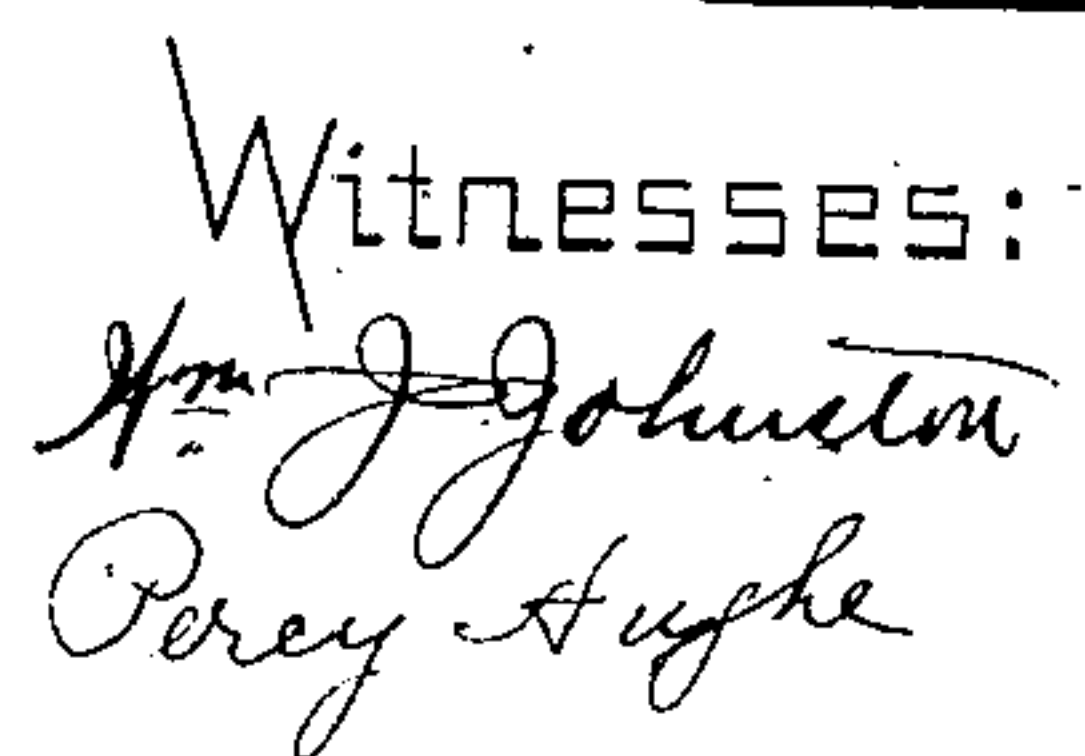 Witnesses:
Wm J Johnston
Percy Hughe